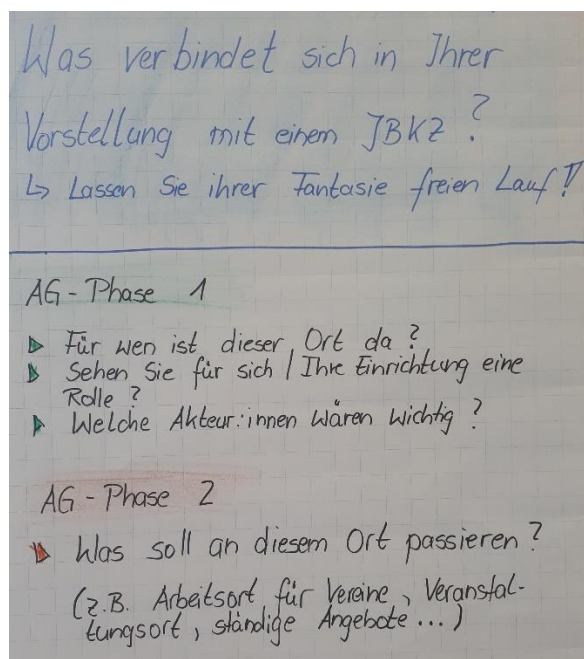 Was verbindet sich in Ihrer
Vorstellung mit einem JBKZ?
↳ Lassen Sie ihrer Fantasie freien Lauf!
AG-Phase 1
▶ Für wen ist dieser Ort da?
▶ Sehen Sie für sich / Ihre Einrichtung eine
Rolle?
▶ Welche Akteur:innen wären wichtig?
AG-Phase 2
▶ Was soll an diesem Ort passieren?
(z.B. Arbeitsort für Vereine, Veranstal-
tungsort, ständige Angebote...)